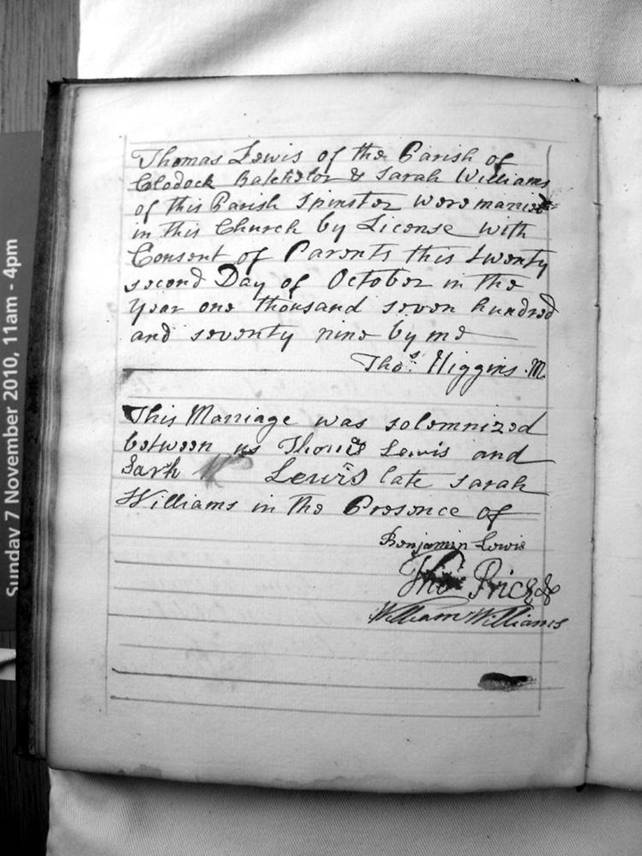 Thomas Lewis of the Parish of
Clodock Batchelor & Sarah Williams
of this Parish Spinster were married
in this Church by License with
Consent of Parents this twenty
second Day of October in the
Year one thousand seven hundred
and seventy nine by me
Thos. Higgins M
This Marriage was solemnized
between us Thomas Lewis and
Sarh Lewis late Sarah
Williams in the Presence of
Benjamin Lewis
Tho Price
William Williams
Sunday 7 November 2010, 11am - 4pm